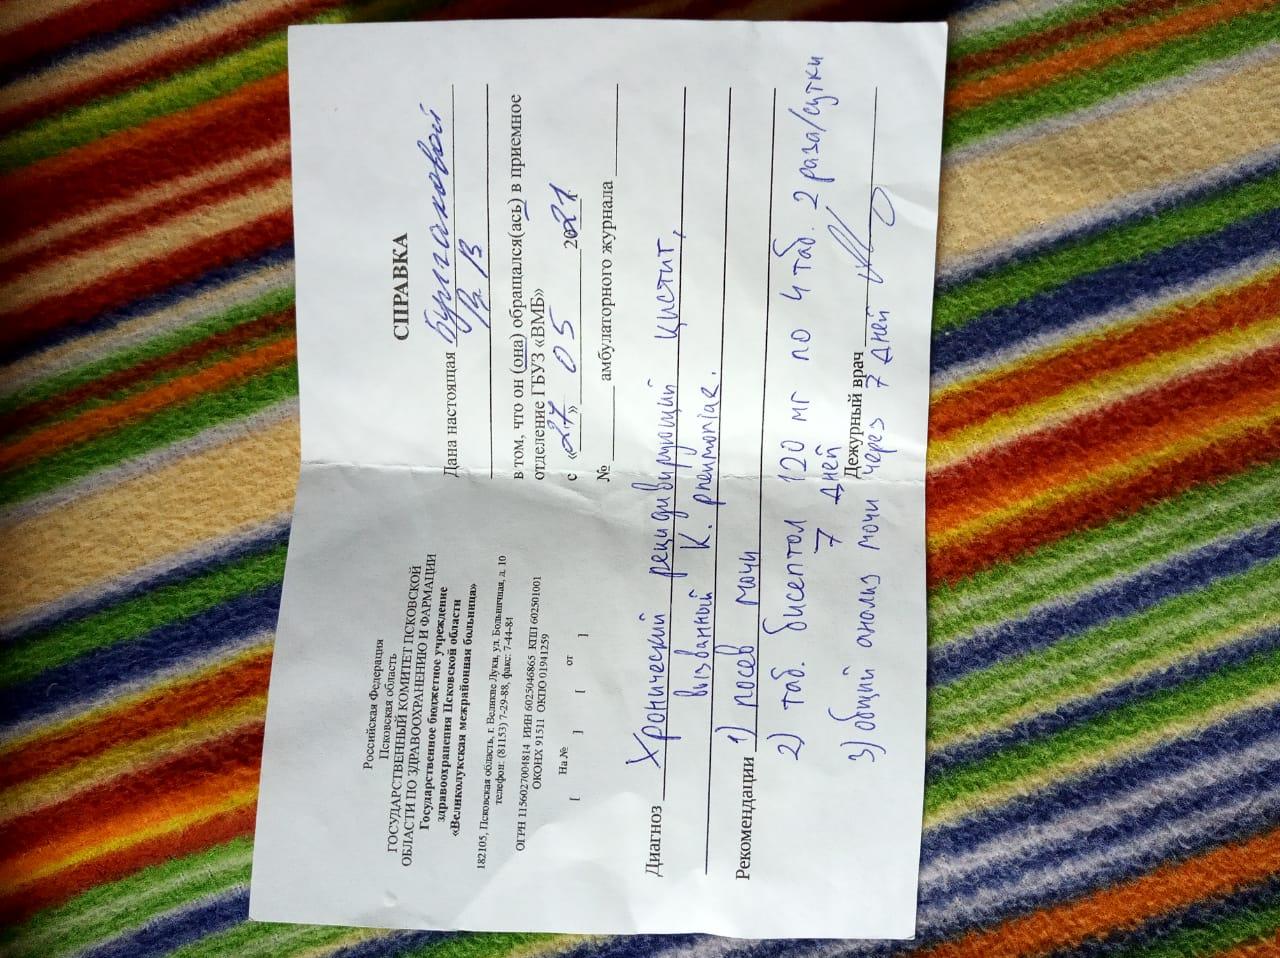 Российская Федерация
Псковская область
ГОСУДАРСТВЕННЫЙ КОМИТЕТ ПСКОВСКОЙ
ОБЛАСТИ ПО ЗДРАВООХРАНЕНИЮ И ФАРМАЦИИ
Государственное бюджетное учреждение
здравоохранения Псковской области
«Великолукская межрайонная больница»
182105, Псковская область, г. Великие Луки, ул. Больничная, д. 10
телефон: (81153) 7-29-88, факс: 7-44-84
ОГРН 1156027004814 ИНН 6025046865 КПП 602501001
ОКОНХ 91511 ОКПО 01941259
На №
[ ] [ от ]
СПРАВКА
Дана настоящая Булгаковой
в том, что он (она) обращался(ась) в приемное
отделение ГБУЗ «ВМБ»
с «27» 05 2021
№ амбулаторного журнала
Диагноз Хронический рецидивирующий цистит,
вызванный K. pneumoniae.
Рекомендации 1) посев мочи
2) таб. бисептол 120 мг по 4 таб. 2 раза/сутки
7 дней
Дежурный врач
3) общий анализ мочи через 7 дней